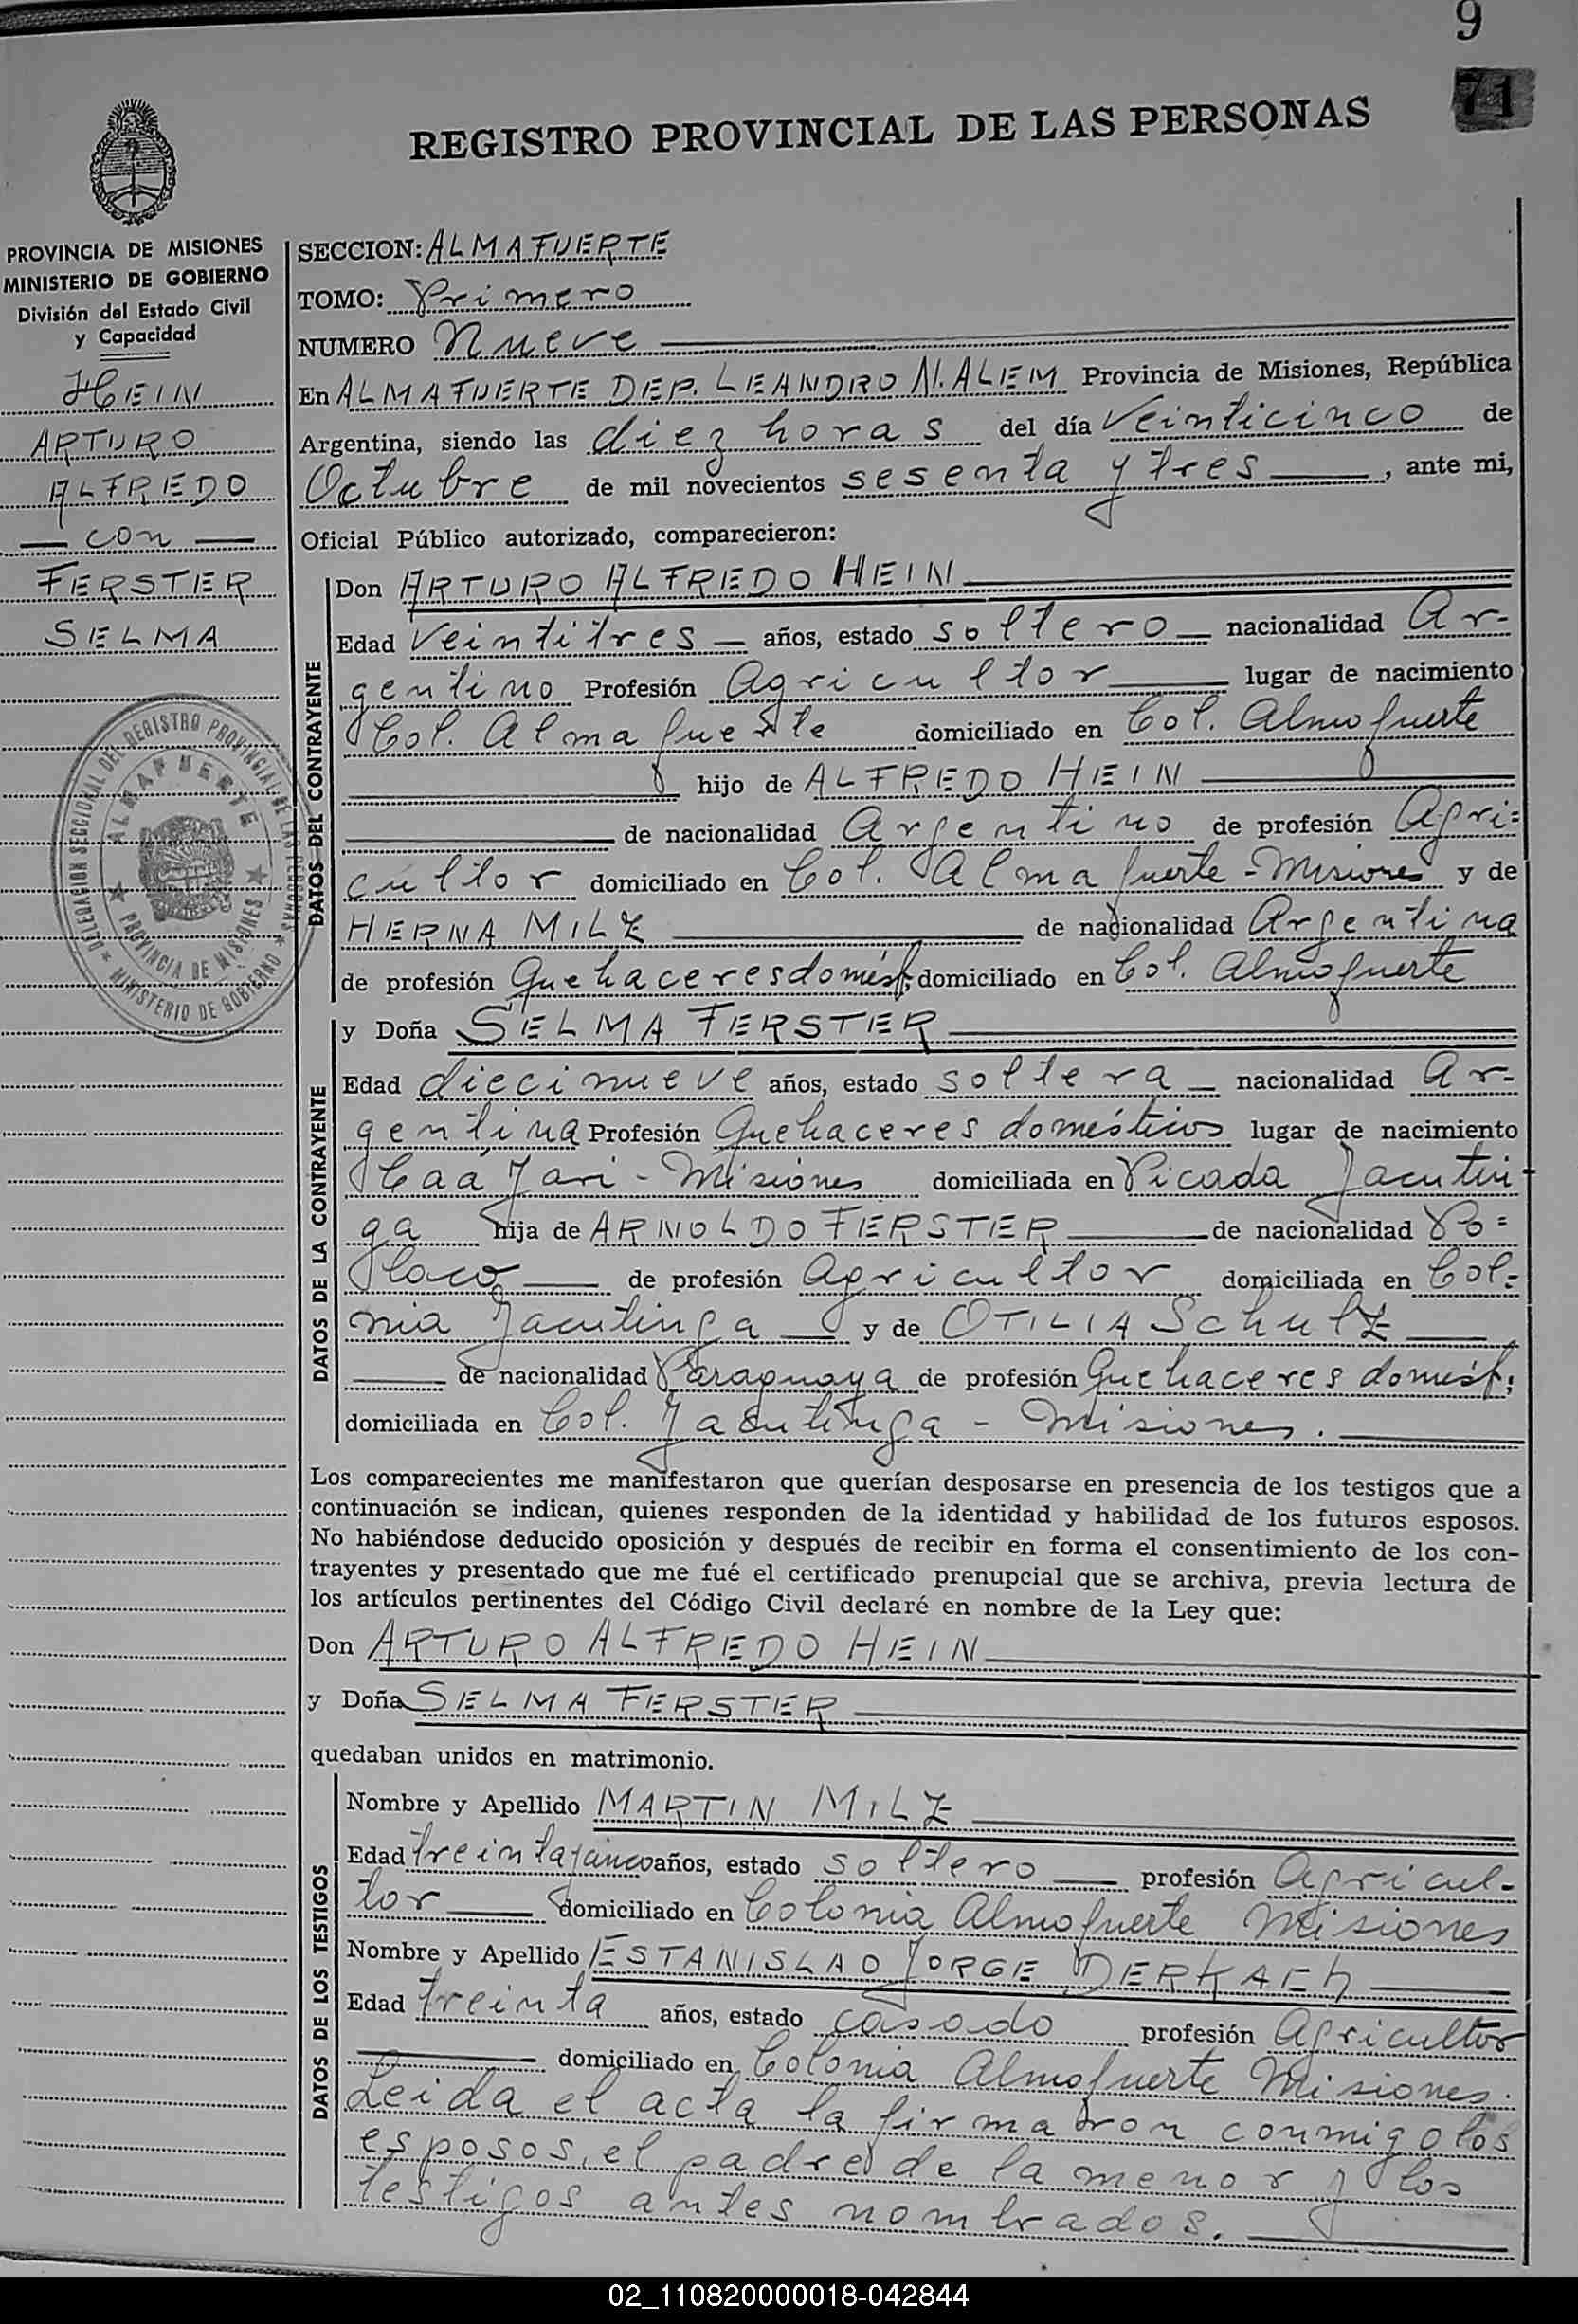 9
71
REGISTRO PROVINCIAL DE LAS PERSONAS
PROVINCIA DE MISIONES
MINISTERIO DE GOBIERNO
División del Estado Civil
y Capacidad
HEIN
ARTURO
ALFREDO
— con —
FERSTER
SELMA
DELEGACION SECCIONAL DEL REGISTRO PROVINCIAL DE LAS PERSONAS
ALMAFUERTE
PROVINCIA DE MISIONES
MINISTERIO DE GOBIERNO
SECCION: ALMAFUERTE
TOMO: Primero
NUMERO Nueve
En ALMAFUERTE DEP. LEANDRO N. ALEM Provincia de Misiones, República
Argentina, siendo las diez horas del día Veinticinco de
Octubre de mil novecientos sesenta y tres, ante mi,
Oficial Público autorizado, comparecieron:
DATOS DEL CONTRAYENTE
Don ARTURO ALFREDO HEIN
Edad Veintitres años, estado soltero nacionalidad Ar-
gentino Profesión Agricultor lugar de nacimiento
Col. Almafuerte domiciliado en Col. Almafuerte
hijo de ALFREDO HEIN
de nacionalidad Argentino de profesión Agri=
cultor domiciliado en Col. Almafuerte - Misiones y de
HERNA MILZ de nacionalidad Argentina
de profesión Quehaceres domést: domiciliado en Col. Almafuerte
DATOS DE LA CONTRAYENTE
y Doña SELMA FERSTER
Edad diecinueve años, estado soltera nacionalidad Ar-
gentina Profesión Quehaceres domésticos lugar de nacimiento
Caá Yari - Misiones domiciliada en Picada Jacutin-
ga hija de ARNOLDO FERSTER de nacionalidad Po=
laco de profesión Agricultor domiciliada en Col=
nia Jacutinga y de OTILIA SchulZ
de nacionalidad Paraguaya de profesión Quehaceres domést:
domiciliada en Col. Jacutinga - Misiones.
Los comparecientes me manifestaron que querían desposarse en presencia de los testigos que a
continuación se indican, quienes responden de la identidad y habilidad de los futuros esposos.
No habiéndose deducido oposición y después de recibir en forma el consentimiento de los con-
trayentes y presentado que me fué el certificado prenupcial que se archiva, previa lectura de
los artículos pertinentes del Código Civil declaré en nombre de la Ley que:
Don ARTURO ALFREDO HEIN
y Doña SELMA FERSTER
quedaban unidos en matrimonio.
DATOS DE LOS TESTIGOS
Nombre y Apellido MARTIN MILZ
Edad treinta y cinco años, estado soltero profesión Agricul-
tor domiciliado en Colonia Almafuerte Misiones
Nombre y Apellido ESTANISLAO JORGE DERKACh
Edad treinta años, estado casado profesión Agricultor
domiciliado en Colonia Almafuerte Misiones.
Leida el acta la firmaron conmigo los
esposos, el padre de la menor y los
testigos antes nombrados.
02_110820000018-042844